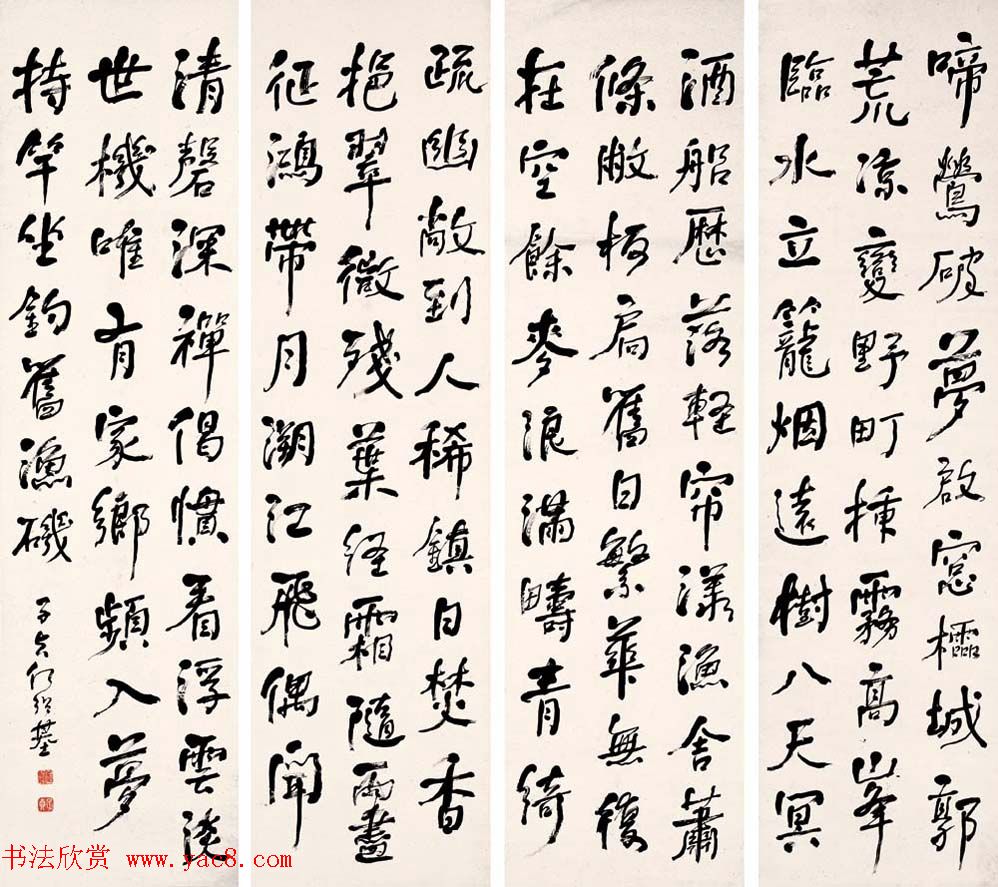 啼鶯破夢啟窓櫺城郭
荒凉變野町揰霧高峯
臨水立籠烟遠樹八天冥
酒船歷落輕帘漾漁舍蕭
條敝板扃舊日繁華無復
在空餘麥浪滿疇青綺
疏幽敞到人稀鎮日焚香
挹翠微殘葉經霜相隨雨盡
征鴻帶月溯江飛偶聞
清磬深禪偈慣看浮雲淡
世機唯有家鄉頻入夢
持竿坐釣舊漁磯
子貞何紹基
书法欣赏 www.yac8.com